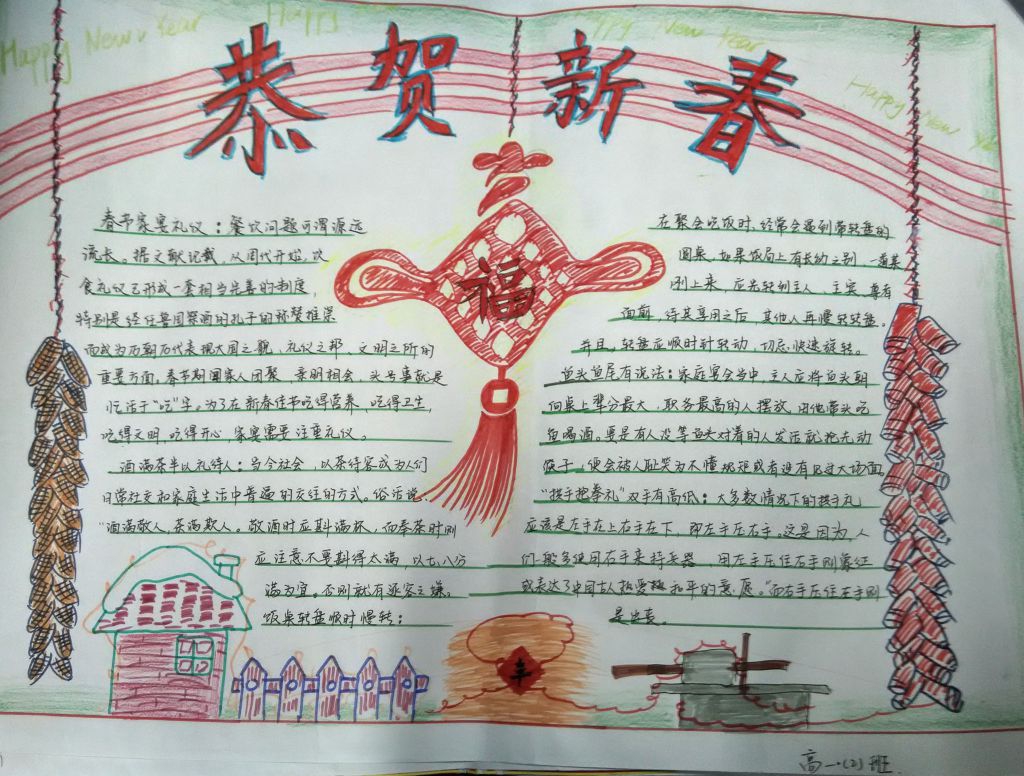 Happy New Year
Happy
Happy New Year
Happy New
恭贺新春
福
春节家宴礼仪：餐饮问题可谓源远
流长。据文献记载，从周代开始，饮
食礼仪已形成一套相当完善的制度，
特别是经任鲁国祭酒的孔子的称赞推崇
而成为历朝历代表现大国之貌、礼仪之邦、文明之所的
重要方面。春节期间家人团聚，亲朋相会，头号事就是
忙活于“吃”字。为了在新春佳节吃得营养，吃得卫生，
吃得文明，吃得开心，家宴需要注重礼仪。
酒满茶半以礼待人：当今社会，以茶待客成为人们
日常社交和家庭生活中普遍的交往的方式。俗话说，
“酒满敬人，茶满欺人。敬酒时应斟满杯，而奉茶时则
应注意不要斟得太满，以七、八分
满为宜。否则就有逐客之嫌。
饭桌转盘顺时慢转：
在聚会吃饭时，经常会遇到带转盘的
圆桌，如果饭局上有长幼之别，一道菜
刚上来，应先转到主人、主宾、尊者
面前，待其享用之后，其他人再慢转转盘，
并且，转盘应顺时针转动，切忌快速旋转。
鱼头鱼尾有说法：家庭宴会当中，主人应将鱼头朝
向桌上辈分最大、职务最高的人摆放，由他带头吃
鱼喝酒。要是有人没等鱼头对着的人发话就抢先动
筷子，便会被人耻笑为不懂规矩或者没有见过大场面
“拱手抱拳礼”双手有高低：大多数情况下的拱手礼
应该是左手在上右手在下，即左手压右手。这是因为，人
们一般多使用右手来持兵器，用左手压住右手则象征
或表达了中国古人热爱和平的意愿。”而右手压住左手则
是出丧。
丰
高一·(2)班